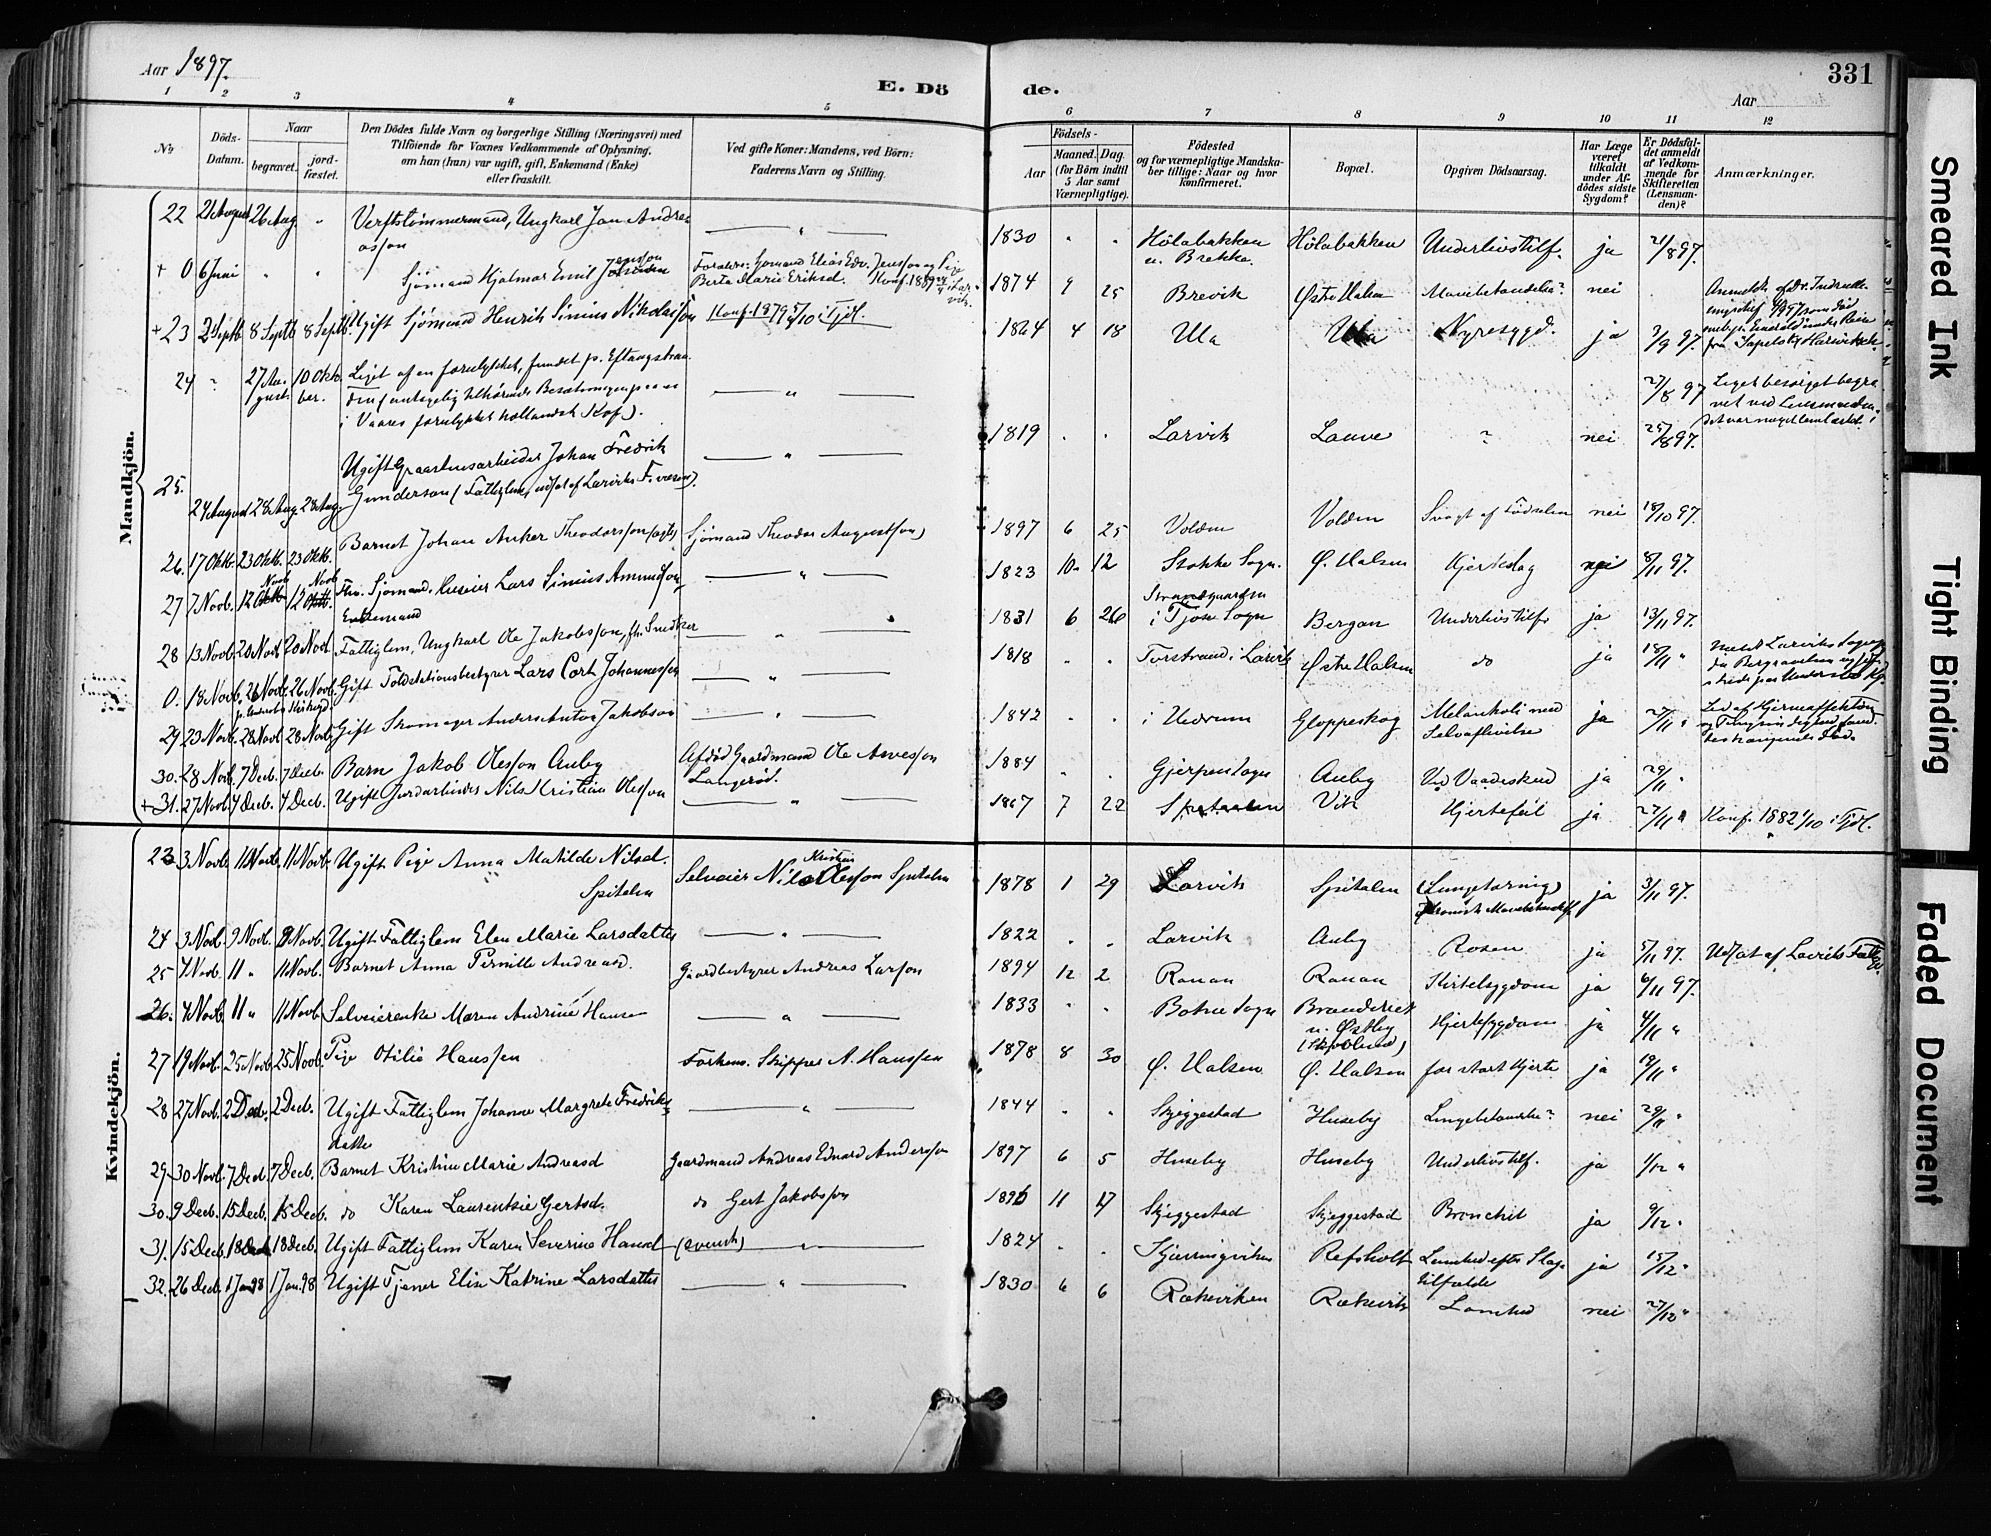 Aar 1897.
E. Dö
de.
331
Aar
1 2 3 4 5 6 7 8 9 10 11 12
No
Döds-Datum.
Naar
begravet.
jord-fæstet.
Den Dödes fulde Navn og borgerlige Stilling (Næringsvei) med
Tilföiende for Voxnes Vedkommende af Oplysning,
om han (hun) var ugift, gift, Enkemand (Enke)
eller fraskilt.
Ved gifte Koner: Mandens, ved Börn:
Faderens Navn og Stilling.
Födsels-
Aar
Maaned. Dag.
(for Börn indtil
5 Aar samt
Værnepligtige).
Födested
og for værnepligtige Mandska-
ber tillige: Naar og hvor
konfirmeret.
Bopæl.
Opgiven Dödsaarsag.
Har Læge
været
tilkaldt
under Af-
dödes sidste
Sygdom?
Er Dödsfal-
det anmeldt
af Vedkom-
mende for
Skifteretten
(Lensman-
den)?
Anmærkninger.
Mandkjön.
22 21 August 26 Aug. " Verftstömmermand, Ungkarl Jan Andreasson " 1830 " " Hölabakken u. Brekke. Hölabakken Underlivstilf. ja 21/8 97.
+ 0 6 Juni " " Sjömand Hjalmar Emil Jensson Forældre: Sjömand Elias Edv. Jensson og Pige Berte Marie Eriksd. Konf. 1889 i Larvik. 1874 9 25 Brevik Østre Halsen Mavebetændelse? nei
+ 23 2 Septb. 8 Septb. 8 Septb. Ugift Sjömand Henrik Sinius Nikolaisson Konf. 1879 5/10 i Tjöl. 1864 4 18 Ula Ula Nyresygd. ja 3/9 97.
24 ? 27 August 10 Oktober. Liget af en forulykket, fundet p. Eftangstranden (antagelig tilhörende Besætningen paa en i Vaares forulykket hollandsk Kof). " 27/8 97 Liget besörget begravet ved Lensmanden.
25. 24 August 28 Aug. 28 Aug. Ugift Graastensarbeider Johan Fredrik Gunderson (Fattiglem, udsat af Larviks F.væsen). " 1819 " " Larvik Lauve ? nei 25/8 97.
26. 17 Oktb. 23 Oktb. 23 Oktb. Barnet Johan Anker Theodorsson (ægte) Sjömand Theodor Augustson) 1897 6 25 Volden Volden Svagt af Födselen nei 18/10 97.
27 7 Novb. 12 Novb 12 Novb Fhv. Sjömand, Huseier Lars Sinius Ammudson, Enkemand " 1823 10 12 Stokke Sogn. Ø. Halsen Hjerteslag nei 8/11 97.
28 13 Novb. 20 Novb. 20 Novb. Fattiglem, Ungkarl Ole Jakobsson, fh. Snedker " 1831 6 26 i Tjöse Sogn Bergan Underlivstilf. ja 13/11 97.
0. 18 Novb. 26 Novb. 26 Novb. Gift Toldstationsbestyrer Lars Cort Johannessen " 1818 " " Torstrand i Larvik Østre Halsen do ja 18/11 "
29 23 Novb. 28 Novb. 28 Novb. Gift Skomager Anders Anton Jakobson " 1842 " " i Hedrum Gloppeskog Melankoli med Selvaflivelse ja 27/11 "
30. 28 Novb. 7 Decb. 7 Decb. Barn Jakob Olesson Auby Afdöd Gaardmand Ole Arvesson Langeröd. 1884 " " Gjerpen Sogn Auby Ved Vaadeskud ja 29/11 "
+ 31. 27 Novb. 4 Decb. 4 Decb. Ugift Jordarbeider Nils Kristian Olesson " 1867 7 22 Spetalen Vik Hjertefeil ja 27/11 " Konf. 1882 1/10 i Tjöl.
Kvindekjön.
23 3 Novb. 11 Novb. 11 Novb. Ugift Pige Anna Matilde Nilsd. Spitalen Selveier Nils Kristian Olesson Spitalen 1878 1 29 Larvik Spitalen (Lungetæring) Kronisk Mavebetændelse ja 3/11 97.
24 3 Novb. 9 Novb. 9 Novb. Ugift Fattiglem Elen Marie Larsdatter " 1822 " " Larvik Auby Rosen ja 5/11 97. Udsat af Larviks Fattigv.
25 4 Novb. 11 " 11 Novb. Barnet Anna Pernille Andreasd. Gaardbestyrer Andreas Larson 1894 12 2 Ranan Ranan Kirtelsygdom ja 6/11 97.
26. 4 Novb. 11 " 11 Novb. Selveierenke Maren Andrine Hansen " 1833 " " Botne Sogn Branderiet u. Østby Hjertesygdom ja 4/11 "
27 19 Novb. 25 Novb. 25 Novb. Pige Otilie Hanssen Forhens. Skipper A. Hanssen 1878 8 30 Ø. Halsen Ø. Halsen for stort Hjerte ja 19/11 "
28 27 Novb. 2 Decb. 2 Decb. Ugift Fattiglem Johanne Margrete Fredriksdatter " 1844 " " Skjeggestad Huseby Lungebetændelse? nei 29/11 "
29 30 Novb. 7 Decb. 7 Decb. Barnet Kristine Marie Andreasd Gaardmand Andreas Edvard Andersson 1897 6 5 Huseby Huseby Underlivstilf. ja 1/12 "
30. 9 Decb. 15 Decb. 15 Decb. do Karen Laurentsie Gertsd. do Gert Jakobsson 1896 11 17 Skjeggestad Skjeggestad Bronchit ja 9/12 "
31. 15 Decb. 18 Decb. 18 Decb. Ugift Fattiglem Karen Severine Hansd (svensk) " 1824 " " Skjærringviken Refsholt Lamhed efter Slagtilfælde ja 15/12 "
32. 26 Decb. 1 Jan 98 1 Jan. 98 Ugift Tjener Elin Katrine Larsdatter " 1830 6 6 Rækeviken Rækevik Lamhed nei 27/12 "
Smeared Ink
Tight Binding
Faded Document